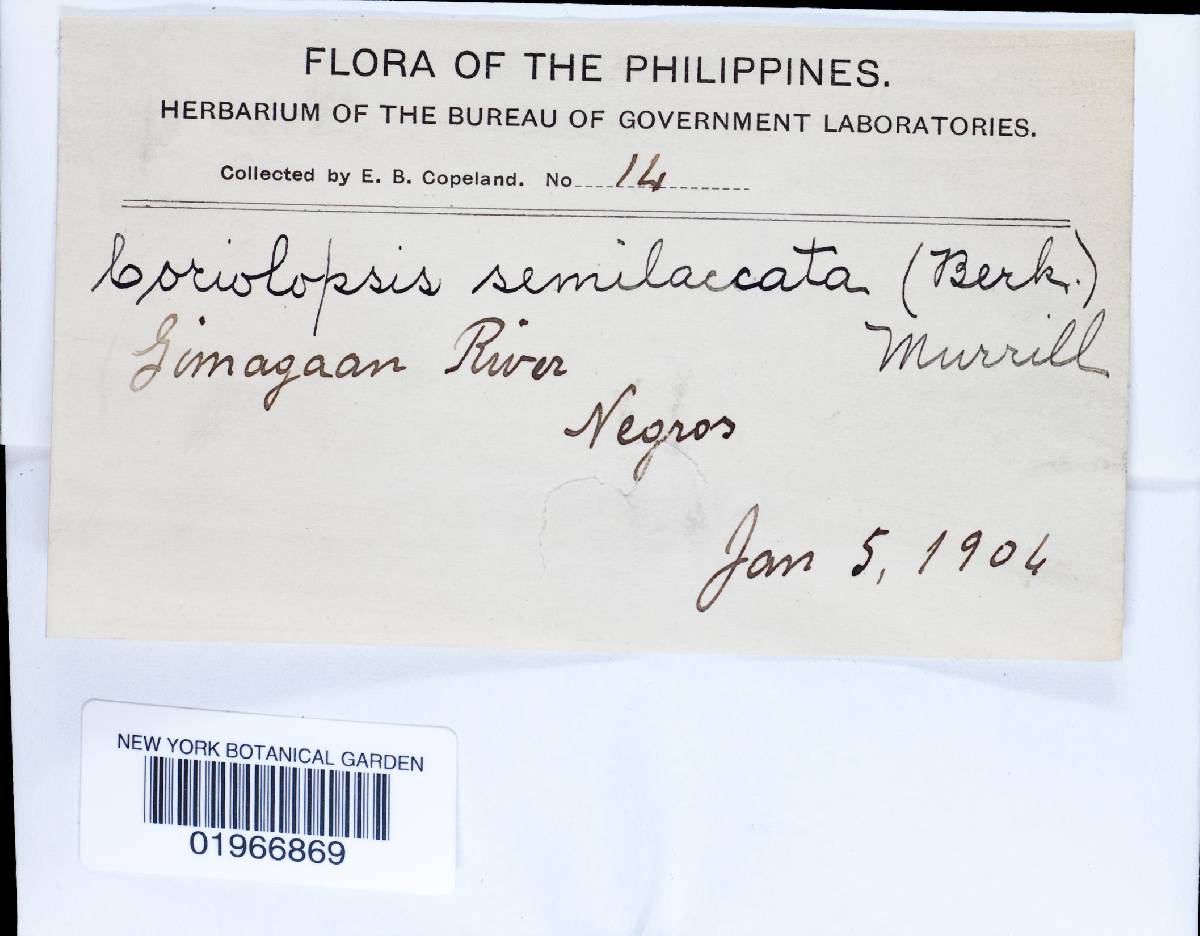 FLORA OF THE PHILIPPINES.
HERBARIUM OF THE BUREAU OF GOVERNMENT LABORATORIES.
Collected by E. B. Copeland. No 14
Coriolopsis semilaccata (Berk.)
Murrill
Gimagaan River
Negros
Jan 5, 1904
NEW YORK BOTANICAL GARDEN
01966869